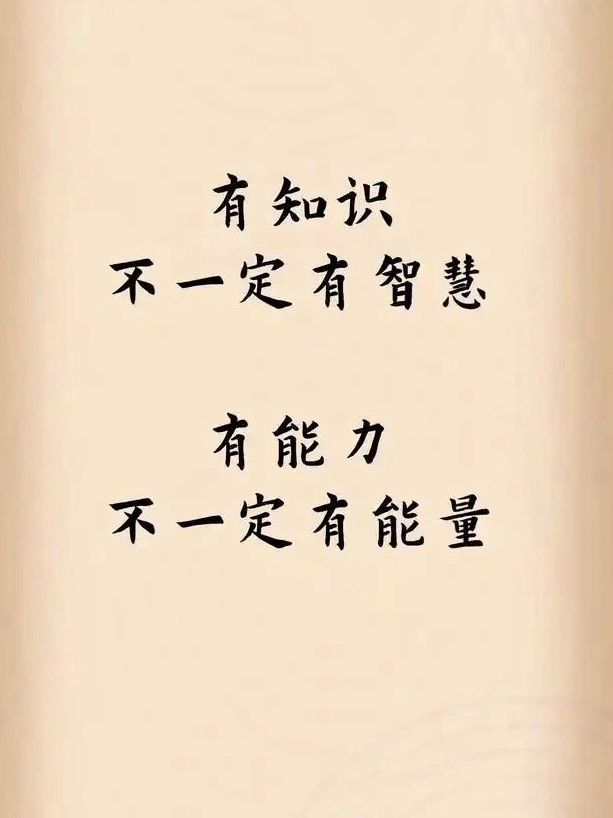 有知识
不一定有智慧
有能力
不一定有能量